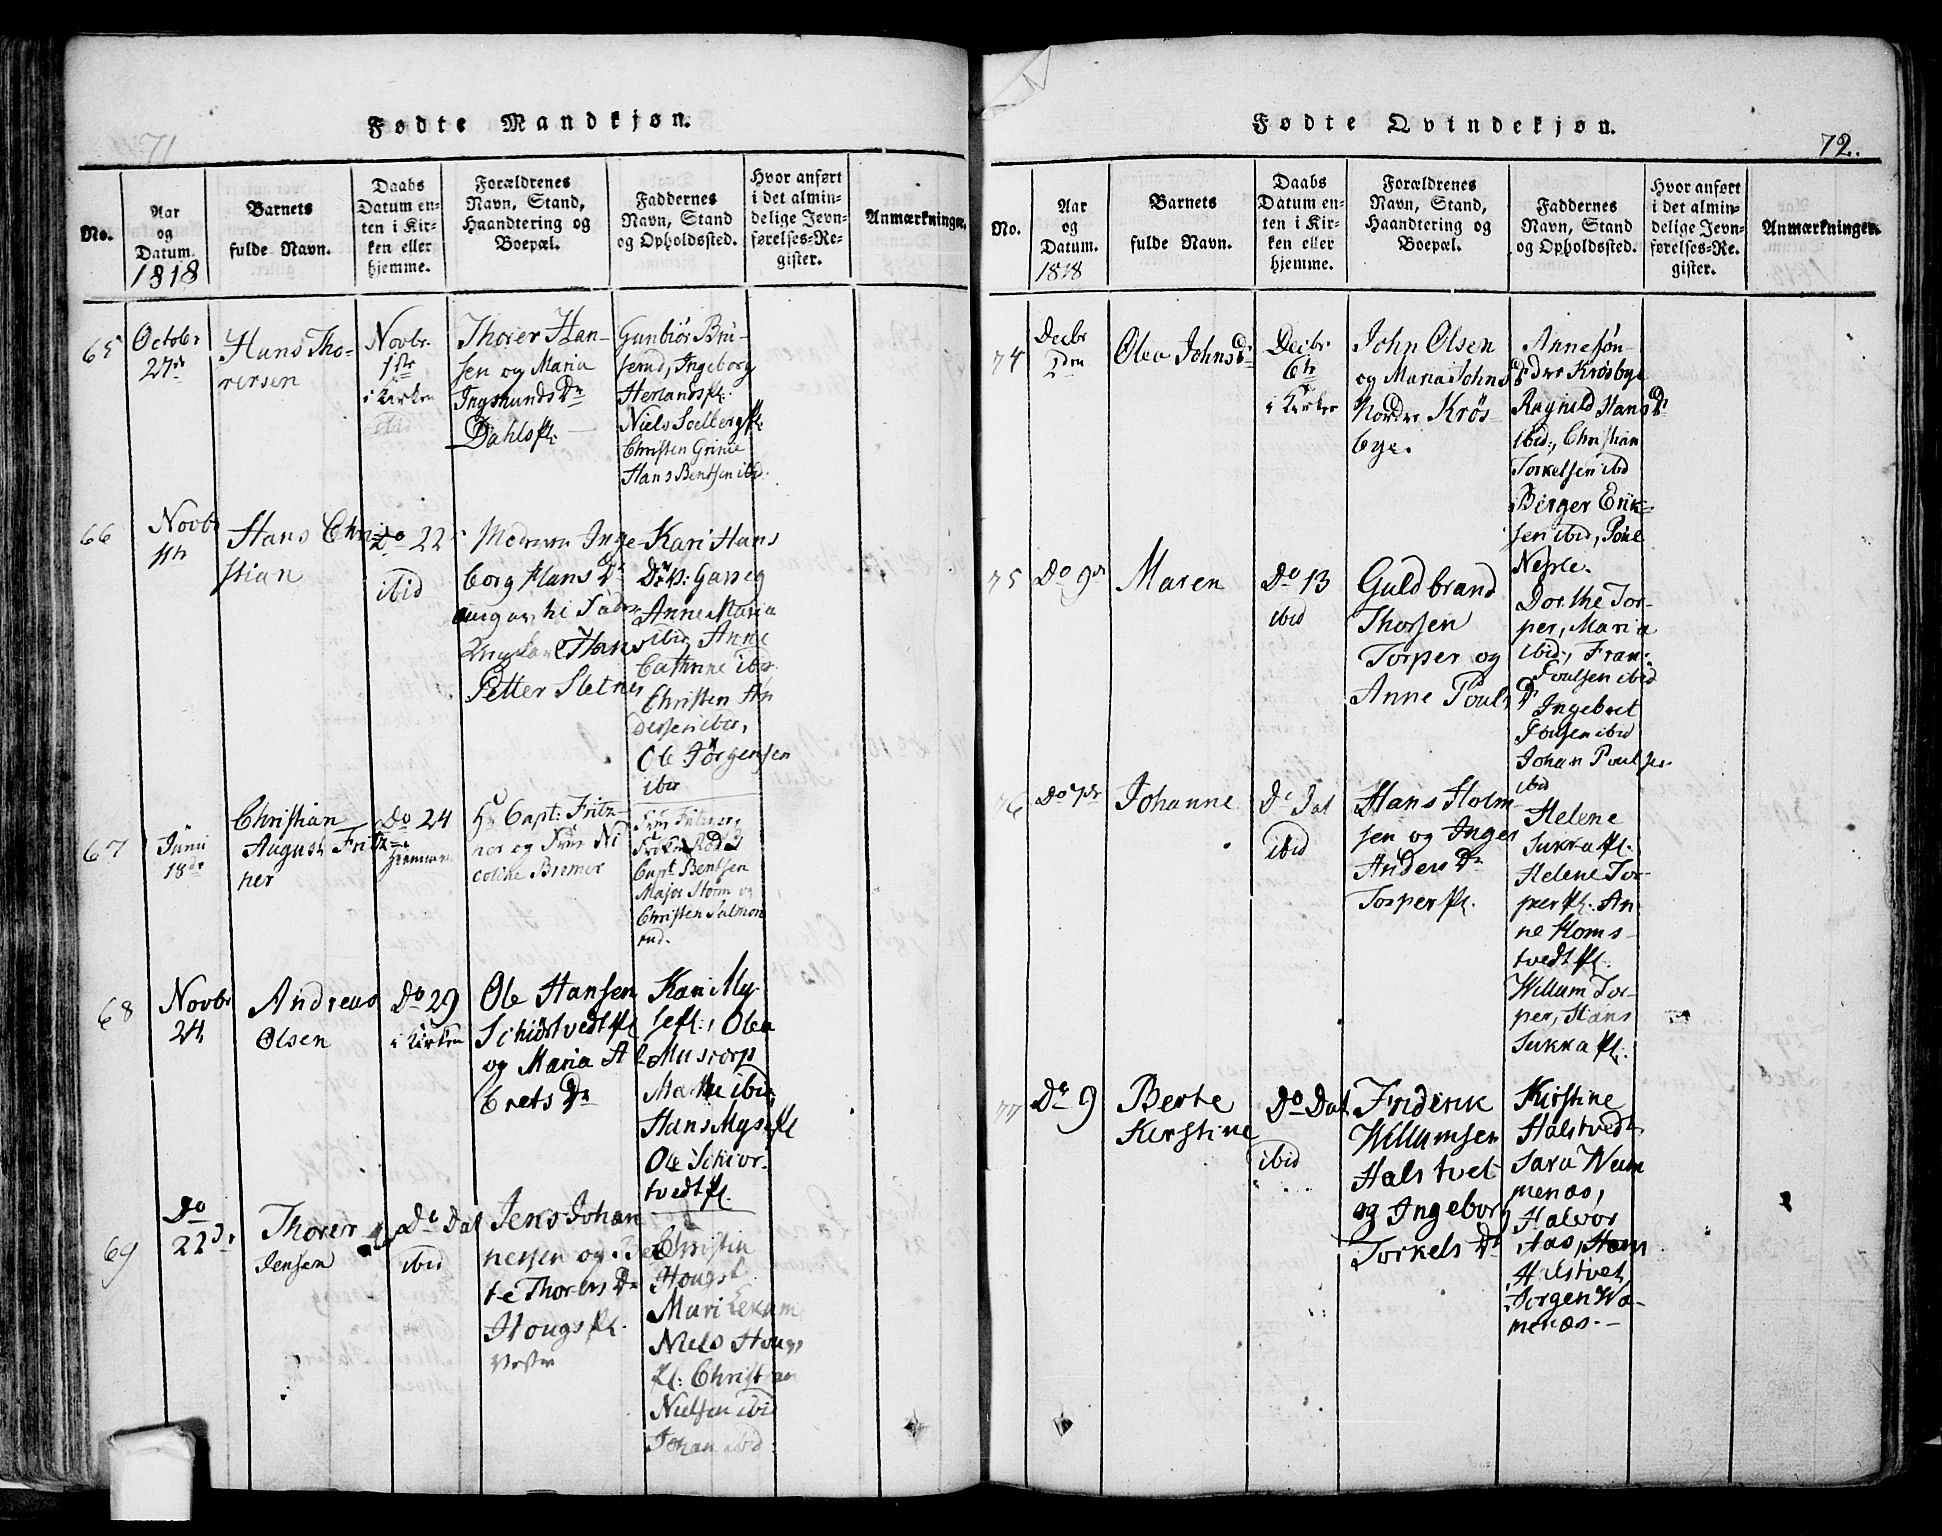 71
Fødte Mandkjøn.
No.
Aar
og
Datum.
1818
Barnets
fulde Navn.
Daabs
Datum en-
ten i Kir-
ken eller
hjemme.
Forældrenes
Navn, Stand,
Haandtering og
Boepæl.
Faddernes
Navn, Stand
og Opholdssted.
Hvor anført
i det almin-
delige Jevn-
førelses-Re-
gister.
Anmærkninger.
65
October
27de
Hans Tho-
rersen
Novbr.
1ste
i Kirken
ibid
Thorer Han-
sen og Maria
Ingmunds Dr
Dahls Pl.
Gunbiør Bru-
serud, Ingeborg
Herlands pl.
Niels Soelberg Pl.
Christen Grinie
Hans Bentsen ibid.
66
Novbr
11te
Hans Chri-
stian
Do 22
ibid
Moderen Inge-
borg Hans Dr
angav til Fader
Ungkarl Hans
Petter Sletnes
Kari Hans
Dr p: Gaseg
Anne Maria
ibid, Anne
Cathrine ibid
Christen An
dersen ibid,
Ole Jørgensen
ibid
67
Junii
18de
Christian
August Fritz-
ner
Do 24
hiemme
Hr Capt: Fritz-
ner og Frue Ni
coline Bremer
Frue Fritzner,
Frøken Rød
Capt Bentsen
Major Storm og
Christen Salmon
rud.
68
Novbr
24
Andreas
Olsen
Do 29
i Kirken
Ole Hansen
Schiørtvedt Pl
og Maria A
brets Dr
Kari My-
se Pl:, Olea
Musdorp
Mathe ibid
Hans Myse Pl
Ole Schiør-
tvedt Pl.
69
Do
22de
Thorer
Jensen
Do Dat
ibid
Jens Johan
nesen og Ber
te Thorers Dr
Hougs Pl.
Vestre
Christin
Hougs
Mari Lekum
Niels Hougs
Pl: Christian
Nielsen ibid
Johan ibid.
72.
Fødte Qvindekjøn.
No.
Aar
og
Datum.
1818
Barnets
fulde Navn.
Daabs
Datum en-
ten i Kir-
ken eller
hjemme.
Forældrenes
Navn, Stand,
Haandtering og
Boepæl.
Faddernes
Navn, Stand
og Opholdssted.
Hvor anført
i det almin-
delige Jevn-
førelses-Re-
gister.
Anmærkninger.
74
Decbr
1den
Olea Johns Dr
Decbr
6te
i Kirken
John Olsen
og Maria Johns Dr
Nordre Krøs-
bye.
Anne Søn-
dre Krøsbye
Ragnild Hans Dr
ibid:, Christian
Torkelsen ibid
Birger Erik-
sen ibid, Poul
Neple.
75
Do 9de
Maren
Do 13
ibid
Guldbrand
Thorsen
Torper og
Anne Pouls Dr
Dorthe Tor-
per, Maria
ibid:, Fran:
Poulsen ibid
Ingebret
Poulsen ibid
Johan Poulsen
ibid
76
Do 7de
Johanne
Do Dat
ibid
Hans Holm
sen og Inger
Anders Dr
Torper Pl.
Helene
Sukka Pl.
Helene Tor-
per Pl. An
ne Koms-
tvedt Pl.
Willum Tor-
per, Hans
Sukka Pl.
77
Do 9
Berte
Kirstine
Do Dat
ibid
Friderik
Willumsen
Halstvet
og Ingeborg
Torkels Dr
Kirstine
Halstvedt
Sara Wem
menæs,
Halvor
Aas, Hans
Halstvet,
Jørgen Wæ-
menæs.-